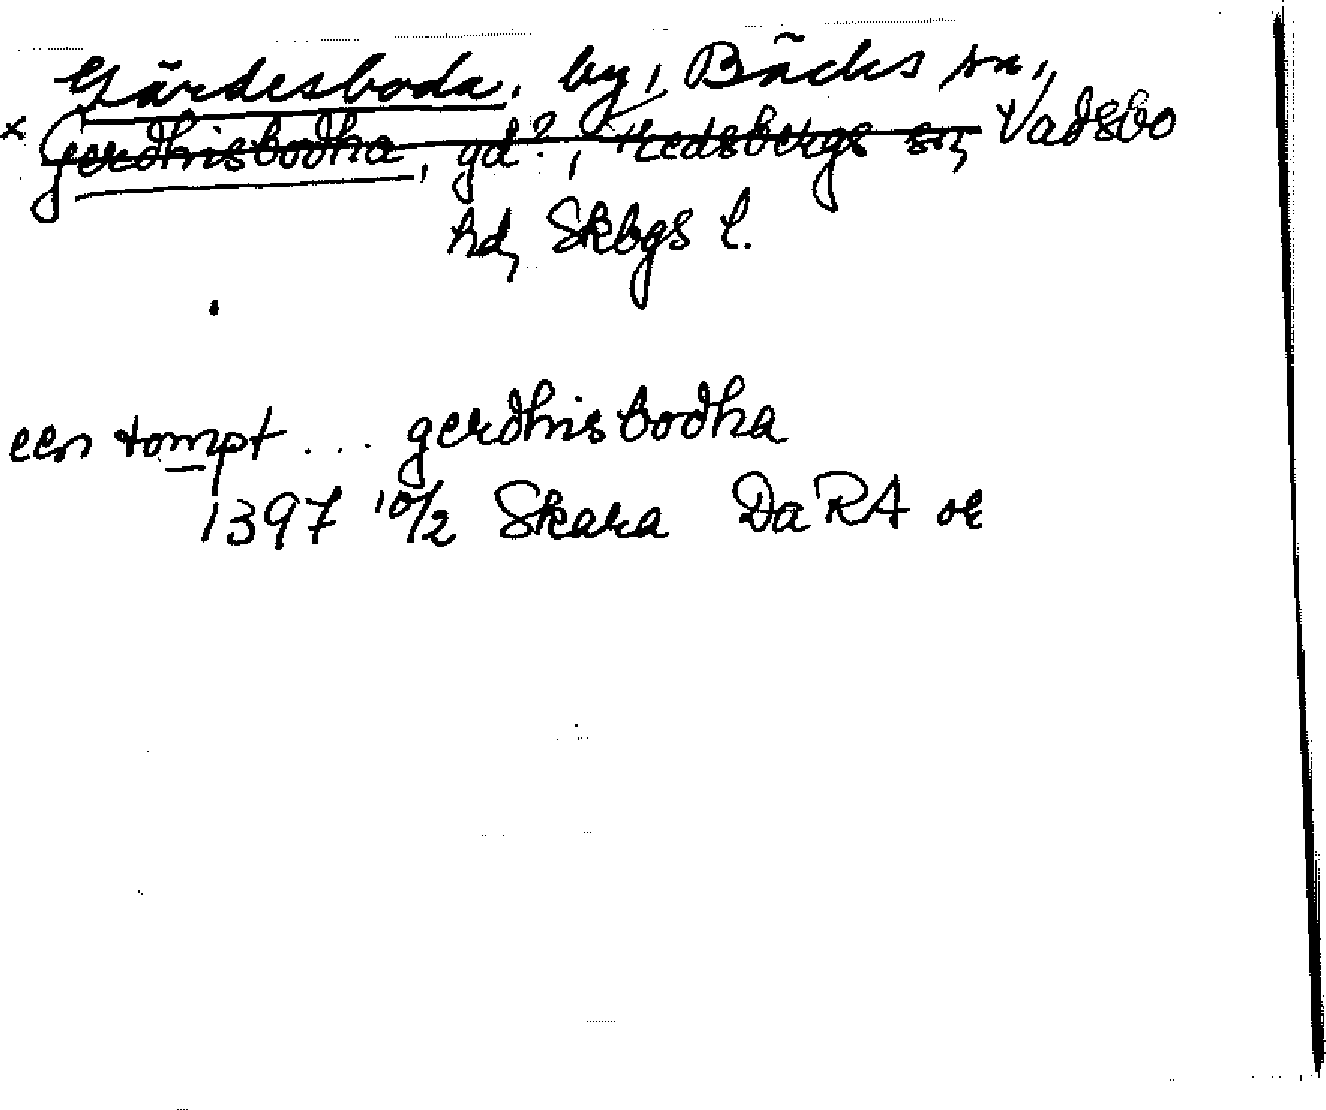 Gärdesboda, by, Bäcks sn,
× Gerdhisbodha, gd?, Fredsbergs sn, Vadsbo
hd, Skbgs l.
een tompt ... gerdhisbodha
1397 10/2 Skara Da RA or